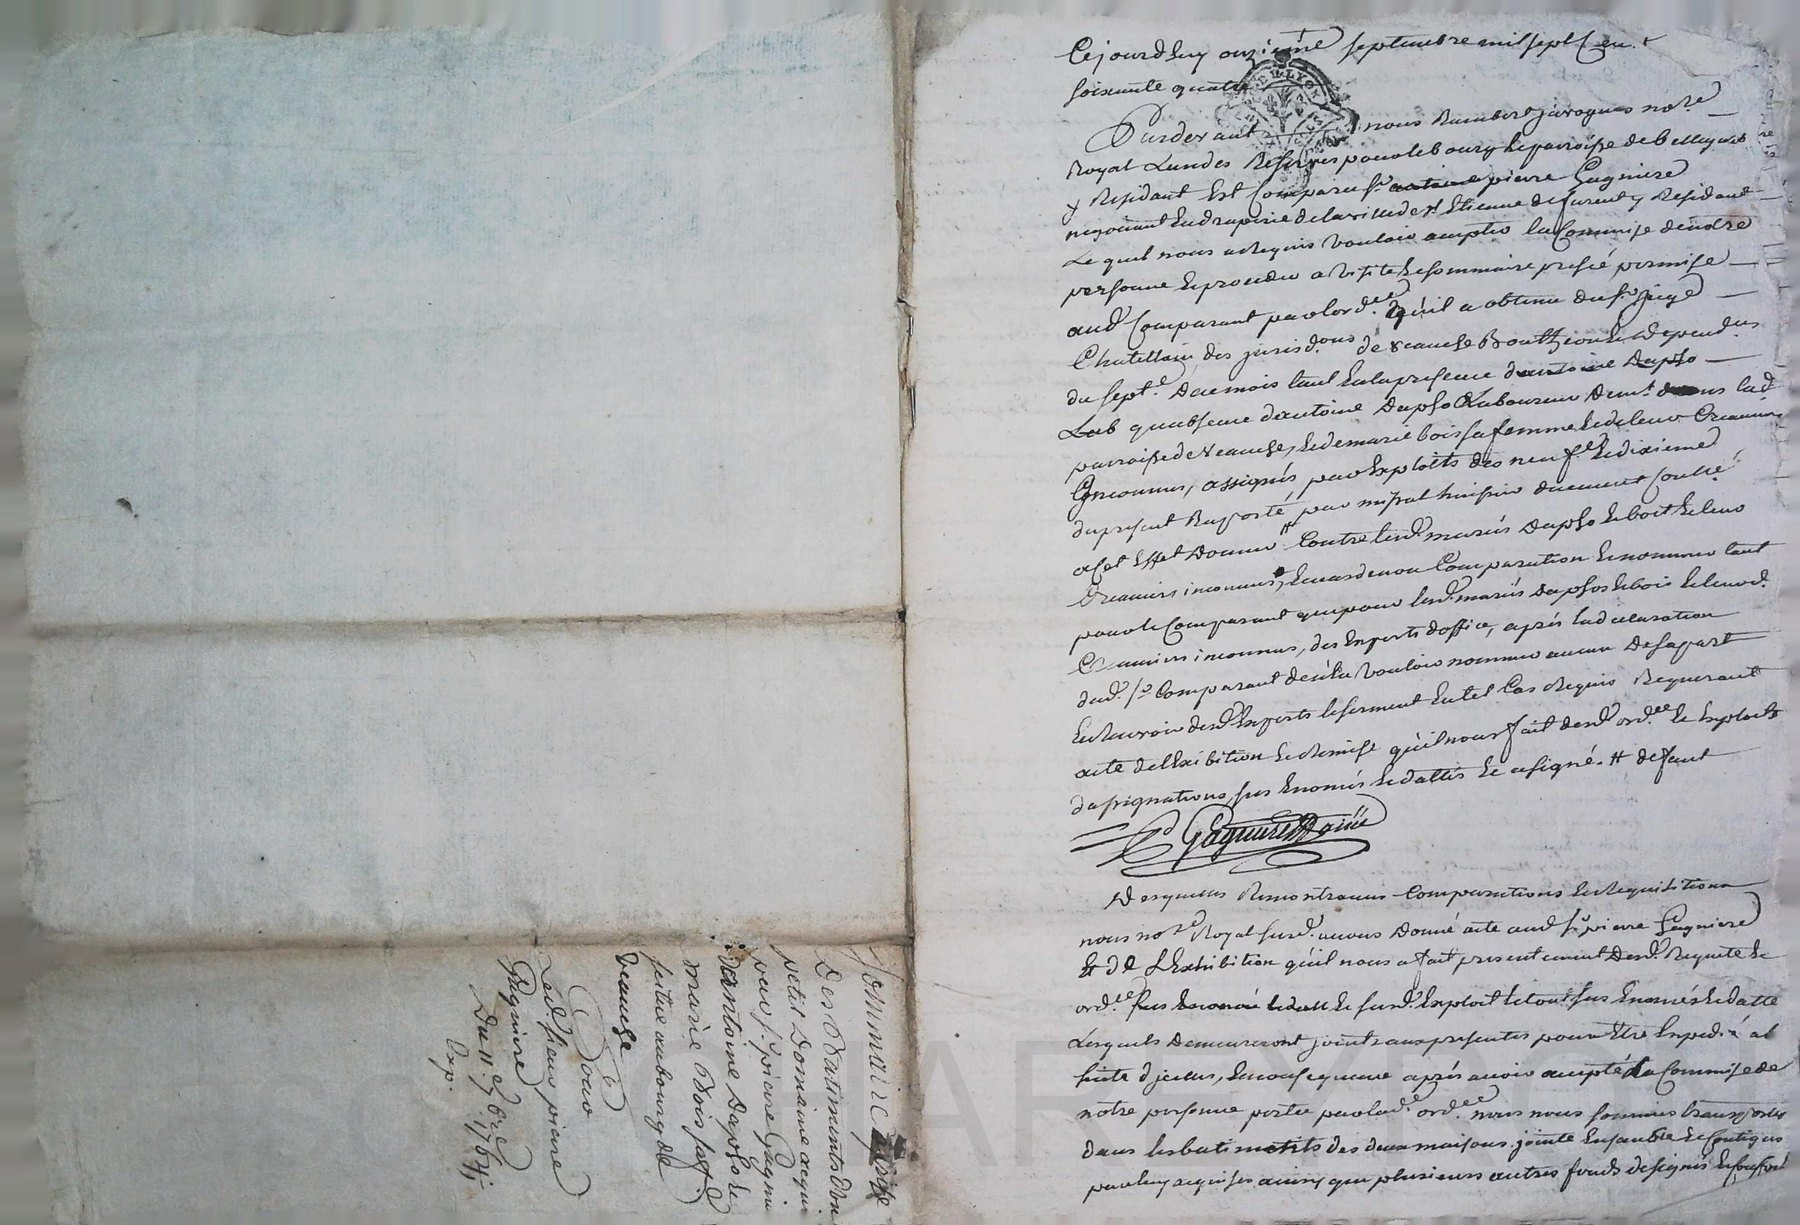 Cejourdhuy onzieme septembre mil sept cen.t
soixante quatre
Pardevant nous Rambert javogues not.re
Royal Lun des Reservés pour le bourg & parroisse de bellegarde
y Residant Est Comparu s.r pierre Gagniere
negotiant En draperie de la ville de s.t Etienne de furent y Residant
Le quel nous a Requis vouloir accepter la Commise de notre
personne & proceder a visite & sommaire prisé permise
aud. Comparant par l'ord.ce qu'il a obtenu du s.r juge
Chatellain des jurisd.ons de veauche Bouthzeon & dependces
du sept.e Du mois tant En la presence d'antoine Dapso
Lab qu'absence d'antoine Dapso Laboureur Dem.t dans lad.
parroisse de veauche, & de marie bois sa femme & de leur Creanciers
Inconnus, assignés par Exploits des neuf.e & dixieme
du present Raporté par mistral huissier duement Controllé
a Cet Effet Donner # Contre lesd. mariés Dapso & bois & leurs
Creanciers inconnus, & en cas de non Comparution & nommer tant
pour le Comparant que pour lesd. mariés Dapsos & bois & leursd.
Creanciers inconnus, des Experts doffice, après la declaration
dud. s.r Comparant de n'en vouloir nommer aucun De sa part
& Recevoir desd. Experts le serment En tel Cas Requis Requerant
acte de lExibition & Remise qu'il nous fait desd. ord.ce & Exploits
dassignations sus Enoncés & dattés & a signé. # defaut
Gagniere L'ainé
Desquelles Remontrances Comparutions & Requisitions
nous not.re Royal susd. avons Donné acte aud. s.r pierre Gagniere
& de L'Exhibition qu'il nous a fait presentement Desd. Requete &
ord.ce sus Enoncé & susd. Exploit le tout sus Enoncés & datté
Lesquels Demeureront joints aux presentes pour Etre Expedié a la
suite d'jcelles, En consequence après avoir accepté la Commise de
notre personne portée par lad.e ord.ce nous nous sommes transportés
dans les batiments des deux maisons jointe Ensemble & Contigues
par luy acquises ainsy que plusieurs autres fonds designés
Sommaire prise
Des Batiments d'un
petit Domaine acquis
par s.r pierre Gagniere
d'antoine Dapso &
marie Bois sa f.e
situé au bourg de
veauche
Pour
Led. sieur pierre
Gagniere
Du 11.e 7bre 1764
Exp.